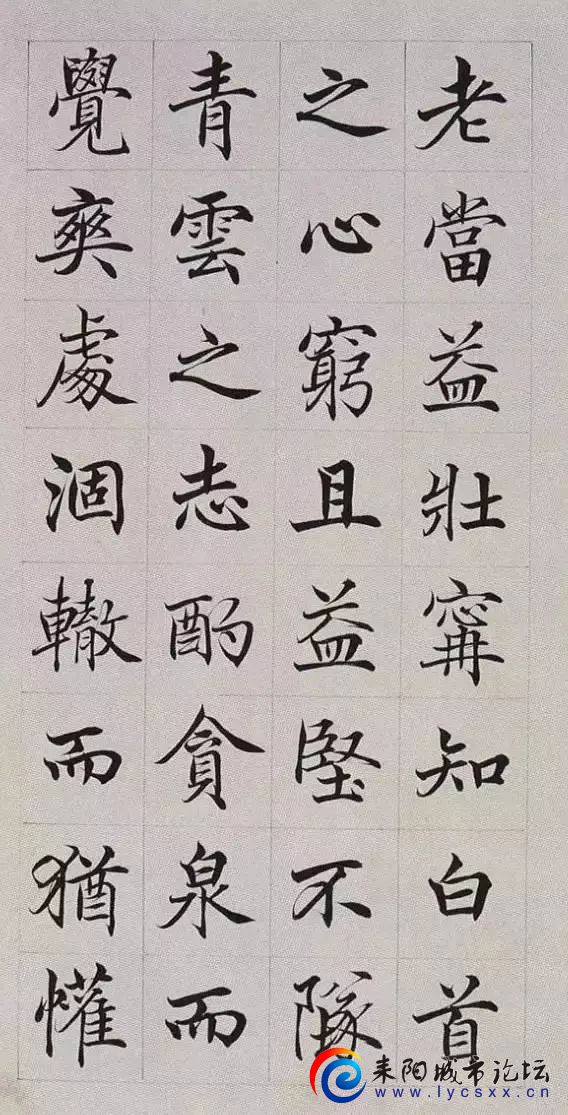 老當益壯寗知白首
之心窮且益堅不墜
青雲之志酌貪泉而
覺爽處涸轍而猶懽
耒阳城市论坛
www.lycsxx.cn